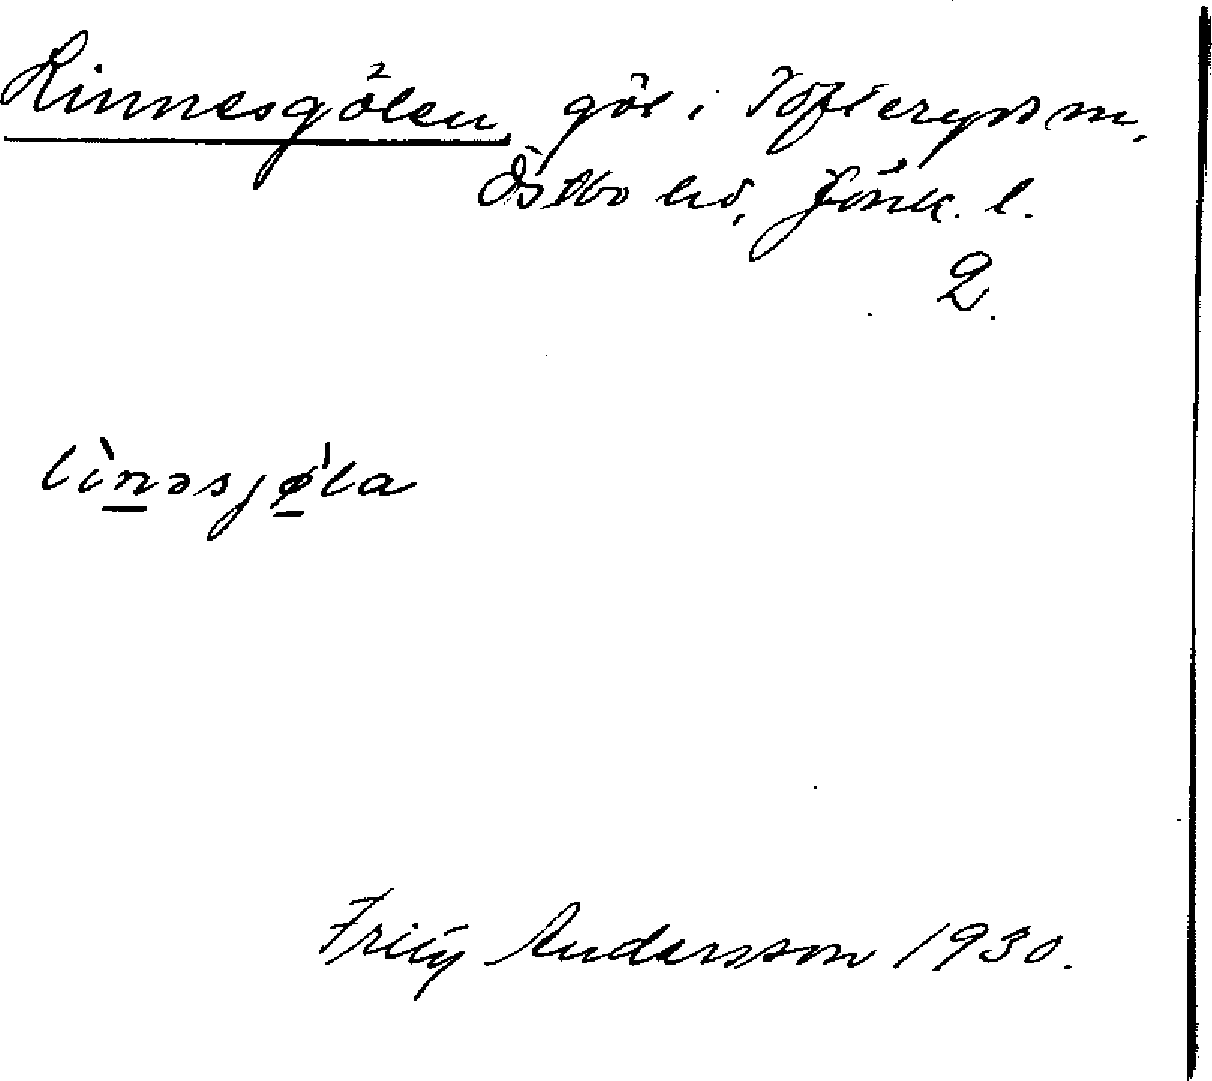 Linnesgölen, göl i Tofteryds sn,
Östbo hd, Jönk. l.
2.
lìnəsjø̀la
Fritz Andersson 1930.